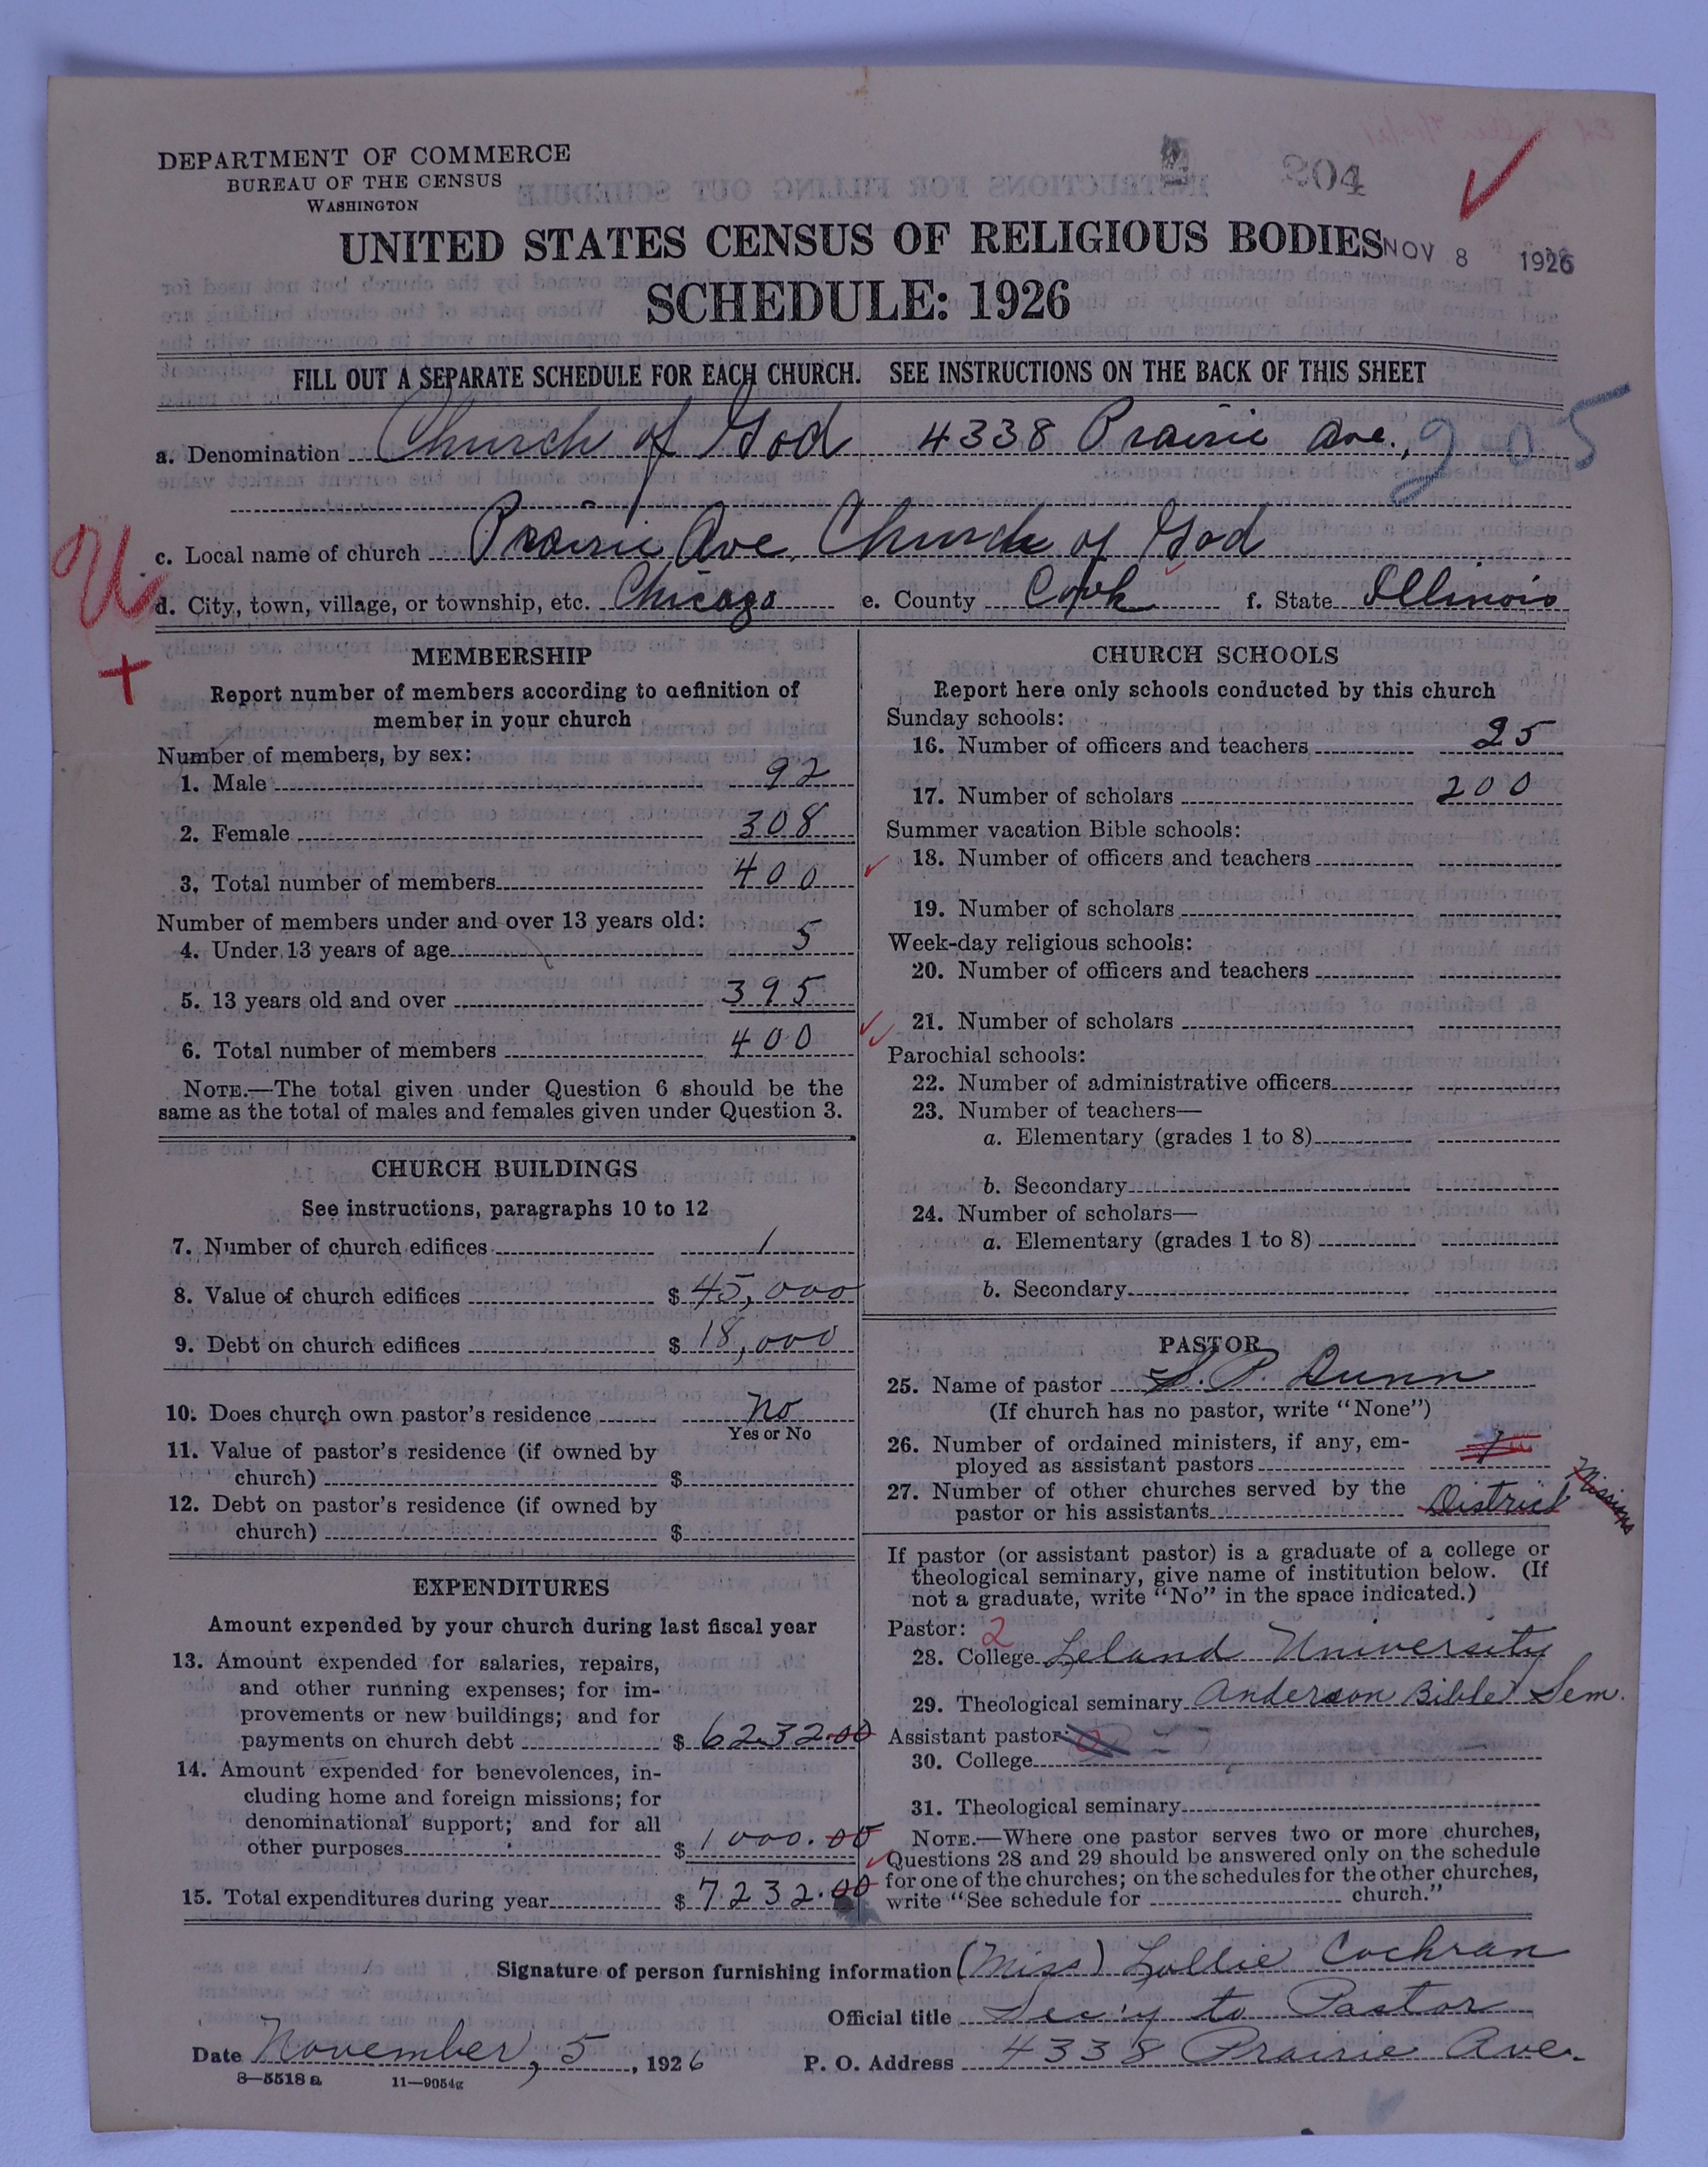 DEPARTMENT OF COMMERCE
BUREAU OF THE CENSUS
WASHINGTON
204
UNITED STATES CENSUS OF RELIGIOUS BODIES
NOV 8 1926
SCHEDULE: 1926
FILL OUT A SEPARATE SCHEDULE FOR EACH CHURCH. SEE INSTRUCTIONS ON THE BACK OF THIS SHEET
a. Denomination Church of God 4338 Prairie Ave., 905
c. Local name of church Prairie Ave. Church of God
d. City, town, village, or township, etc. Chicago e. County Cook f. State Illinois
U
+
MEMBERSHIP
Report number of members according to definition of
member in your church
Number of members, by sex:
1. Male 92
2. Female 308
3. Total number of members 400
Number of members under and over 13 years old:
4. Under 13 years of age 5
5. 13 years old and over 395
6. Total number of members 400
NOTE.—The total given under Question 6 should be the
same as the total of males and females given under Question 3.
CHURCH BUILDINGS
See instructions, paragraphs 10 to 12
7. Number of church edifices 1
8. Value of church edifices $ 45,000
9. Debt on church edifices $ 18,000
10. Does church own pastor's residence No
Yes or No
11. Value of pastor's residence (if owned by
church) $
12. Debt on pastor's residence (if owned by
church) $
EXPENDITURES
Amount expended by your church during last fiscal year
13. Amount expended for salaries, repairs,
and other running expenses; for im-
provements or new buildings; and for
payments on church debt $ 6232.00
14. Amount expended for benevolences, in-
cluding home and foreign missions; for
denominational support; and for all
other purposes $ 1000.00
15. Total expenditures during year $ 7232.00
CHURCH SCHOOLS
Report here only schools conducted by this church
Sunday schools:
16. Number of officers and teachers 25
17. Number of scholars 200
Summer vacation Bible schools:
18. Number of officers and teachers
19. Number of scholars
Week-day religious schools:
20. Number of officers and teachers
21. Number of scholars
Parochial schools:
22. Number of administrative officers
23. Number of teachers—
a. Elementary (grades 1 to 8)
b. Secondary
24. Number of scholars—
a. Elementary (grades 1 to 8)
b. Secondary
PASTOR
25. Name of pastor S. P. Dunn
(If church has no pastor, write "None")
26. Number of ordained ministers, if any, em-
ployed as assistant pastors
27. Number of other churches served by the
pastor or his assistants District Missions
If pastor (or assistant pastor) is a graduate of a college or
theological seminary, give name of institution below. (If
not a graduate, write "No" in the space indicated.)
Pastor: 2
28. College Leland University
29. Theological seminary Anderson Bible Sem.
Assistant pastor:
30. College
31. Theological seminary
NOTE.—Where one pastor serves two or more churches,
Questions 28 and 29 should be answered only on the schedule
for one of the churches; on the schedules for the other churches,
write "See schedule for church."
Signature of person furnishing information (Miss) Lollie Cochran
Official title Sec'y to Pastor
Date November, 5, 1926 P. O. Address 4338 Prairie Ave.
8—5518 a 11—9054g